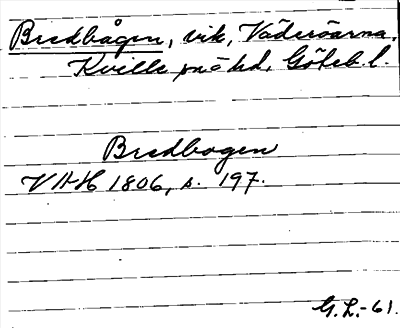 Bredbågen, vik, Väderöarna,
Kville sn o hd, Göteb. l.
Bredbogen
VAH 1806, s. 197.
G.L.-61.